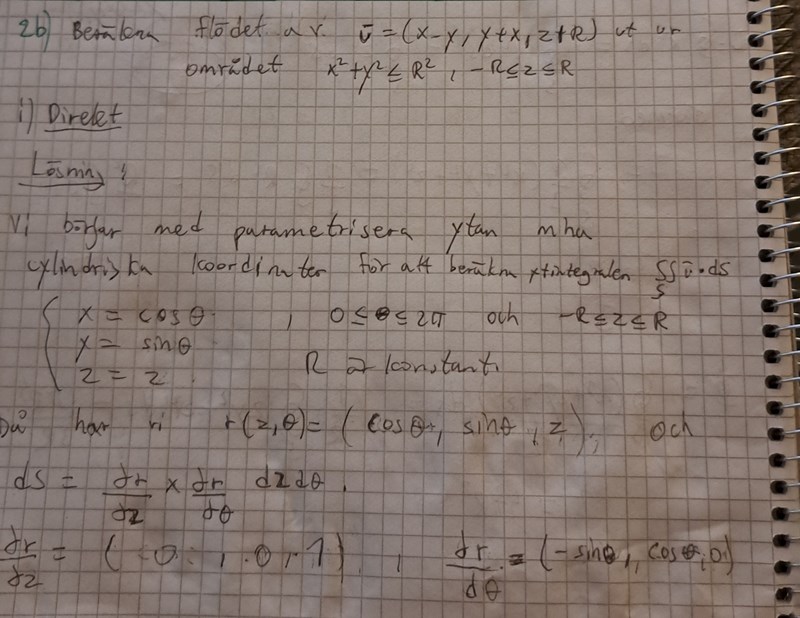 2b) Beräkna flödet av ū = (x-y, y+x, z+R) ut ur
området x²+y² ≤ R², -R ≤ z ≤ R
i) Direkt
Lösning:
Vi börjar med parametrisera ytan mha
cylindriska koordinater för att beräkna ytintegralen ∬ ū • ds
S
{ x = cosθ , 0 ≤ θ ≤ 2π och -R ≤ z ≤ R
y = sinθ
z = z R är konstant.
Då har vi r(z,θ) = (cosθ, sinθ, z), och
ds = dr/dz × dr/dθ dzdθ.
dr/dz = (0, 0, 1) , dr/dθ = (-sinθ, cosθ, 0)